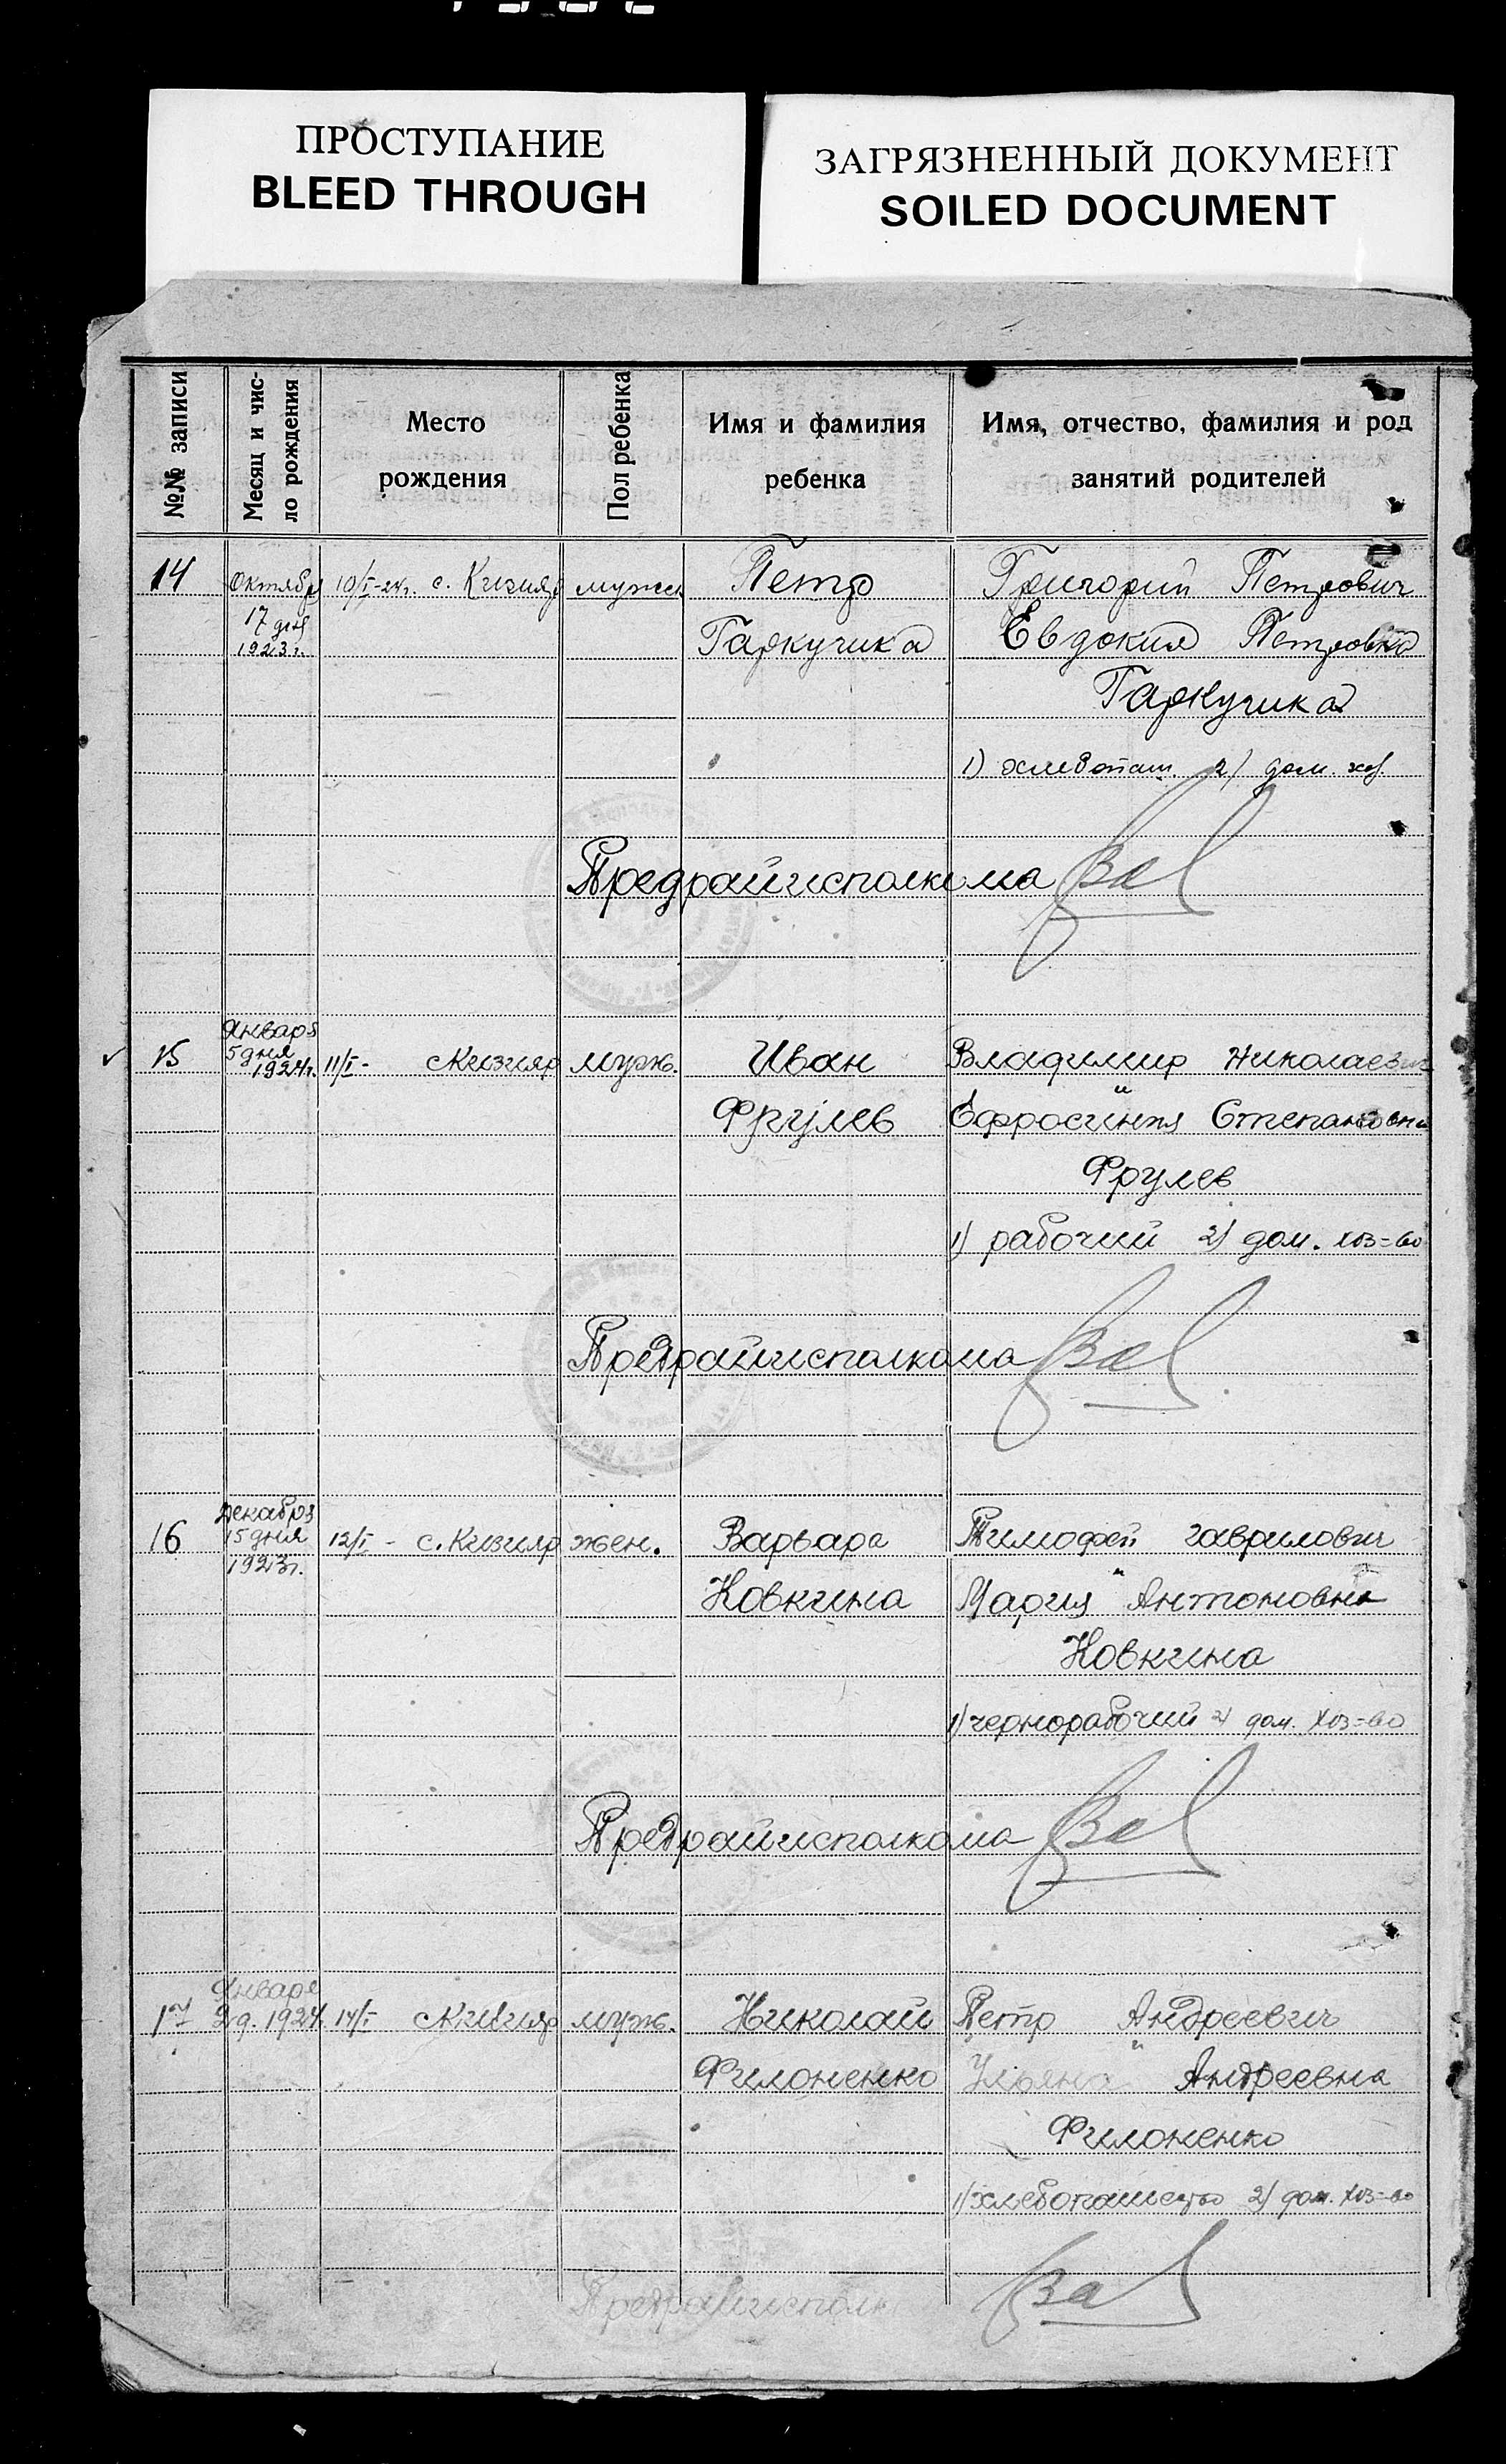 ПРОСТУПАНИЕ
BLEED THROUGH
ЗАГРЯЗНЕННЫЙ ДОКУМЕНТ
SOILED DOCUMENT
№№ записи
Месяц и чис-
ло рождения
Место
рождения
Пол ребенка
Имя и фамилия
ребенка
Имя, отчество, фамилия и род
занятий родителей
14 Октября 10/I-24г. с. Кизияр мужск Петр Григорий Петрович
17 дня Гаркучика Евдокия Петровна
1923г.
Гаркучика
1) хлебопаш. 2) дом. хоз.
Предрайисполкома
Января
15 5 дня 11/I- с Кизияр муж. Иван Владимир Николаевич
1924г.
и
Фрулев Ефросиния Степановна
Фрулев
1) рабочий 2) дом. хоз=во
Предрайисполкома
Декабря
16 15 дня 12/I - с. Кизияр жен. Варвара Тимофей Гаврилович
1923г.
Новкина Мария Антоновна
Новкина
1) чернорабочий 2) дом. хоз=во
Предрайисполкома
Января
17 2 д. 1924. 14/I с Кизияр муж. Николай Петр Андреевич
Филоненко Ульяна Андреевна
Филоненко
1) хлебопашество 2) дом. хоз=во
Предрайисполк